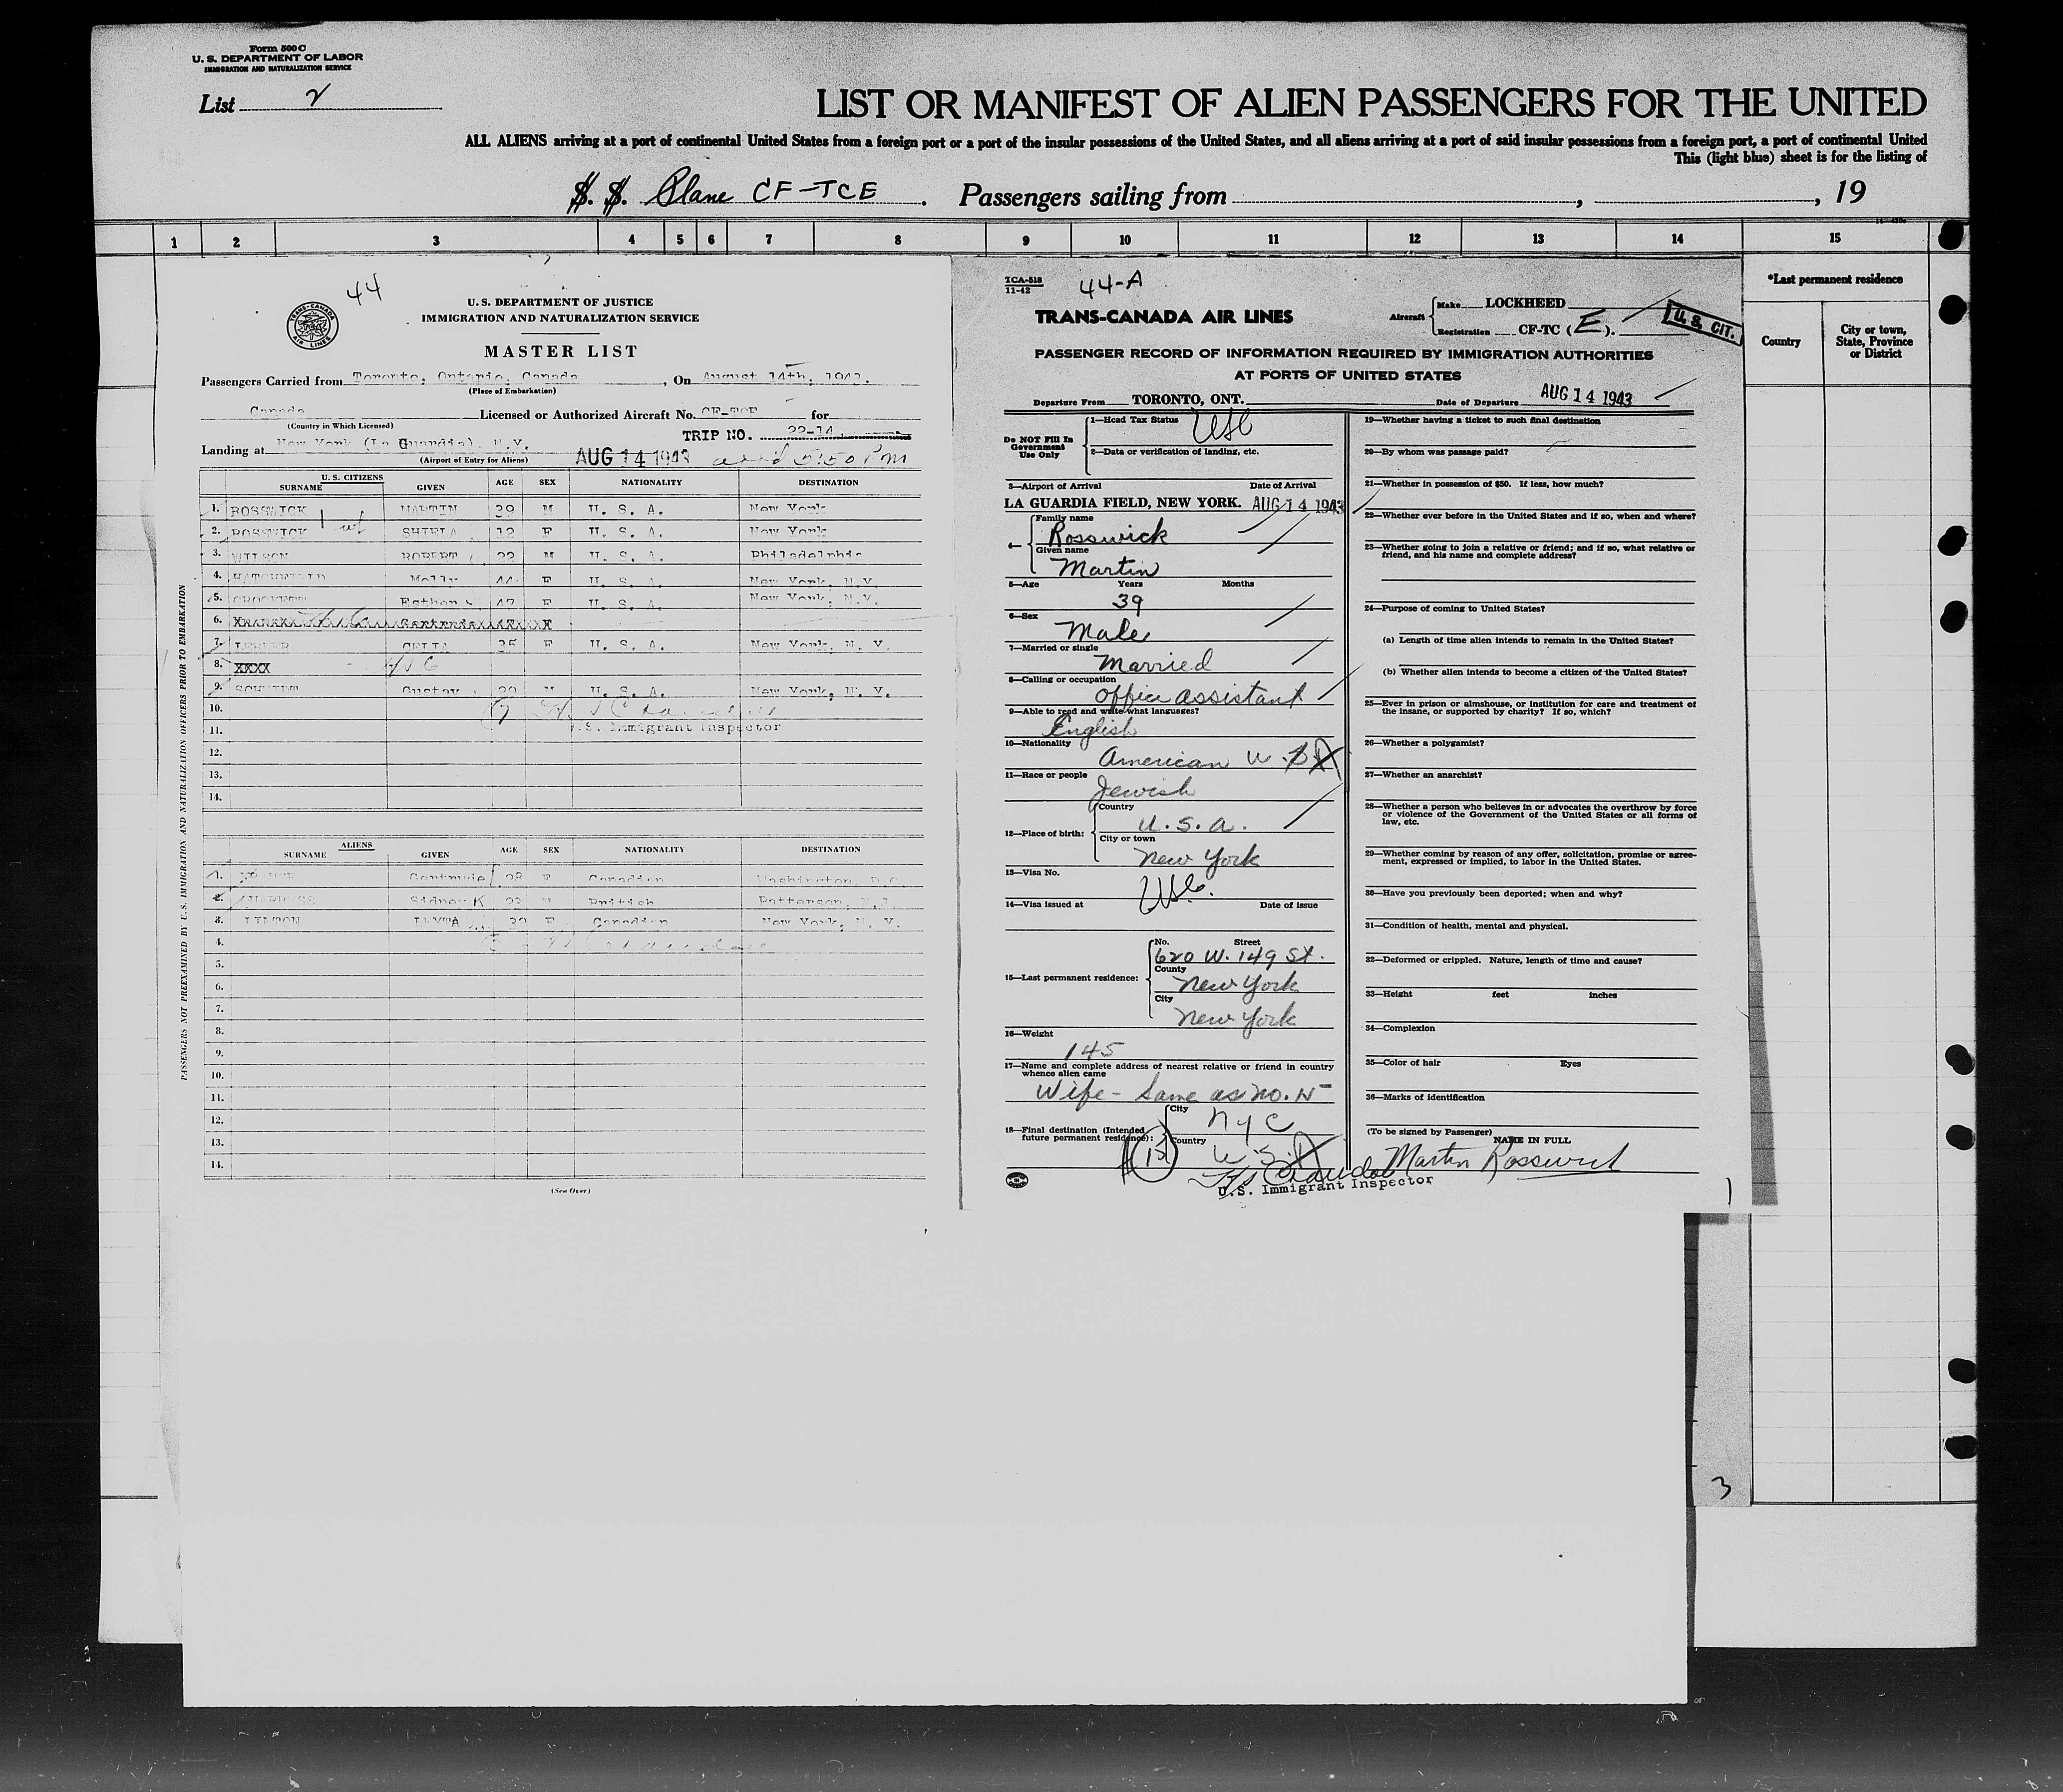 Form 500 C
U. S. DEPARTMENT OF LABOR
IMMIGRATION AND NATURALIZATION SERVICE
List 2
LIST OR MANIFEST OF ALIEN PASSENGERS FOR THE UNITED
ALL ALIENS arriving at a port of continental United States from a foreign port or a port of the insular possessions of the United States, and all aliens arriving at a port of said insular possessions from a foreign port, a port of continental United
This (light blue) sheet is for the listing of
S. S. Plane CF-TCE. Passengers sailing from , , 19
1 2 3 4 5 6 7 8 9 10 11 12 13 14 15
*Last permanent residence
Country
City or town, State, Province or District
44
TRANS-CANADA AIR LINES
U. S. DEPARTMENT OF JUSTICE
IMMIGRATION AND NATURALIZATION SERVICE
MASTER LIST
Passengers Carried from Toronto, Ontario, Canada, On August 14th, 1943.
(Place of Embarkation)
Canada Licensed or Authorized Aircraft No. CF-TCE for
(Country in Which Licensed)
TRIP NO. 22-14
Landing at New York (La Guardia), N.Y.
(Airport of Entry for Aliens) AUG 14 1943 arr'd 5:50 Pm
U. S. CITIZENS
SURNAME GIVEN AGE SEX NATIONALITY DESTINATION
1. ROSSWICK MARTIN 39 M U. S. A. New York
2. ROSSWICK SHEILA 12 F U. S. A. New York
3. WILSON ROBERT 22 M U. S. A. Philadelphia
4. Molly 44 F U. S. A. New York, N.Y.
5. CROCKETT Esther 47 F U. S. A. New York, N.Y.
6. Gertrude
7. CELIA 35 F U. S. A. New York, N. Y.
8. XXXX
9. SCHMIDT Gustav M U. S. A. New York, N. Y.
10.
11. U.S. Immigrant Inspector
12.
13.
14.
ALIENS
SURNAME GIVEN AGE SEX NATIONALITY DESTINATION
1. Gertrude 28 F Canadian Washington, D.C.
2. Sidney K 23 M British Patterson, N.J.
3. LINTON F Canadian New York, N. Y.
4.
5.
6.
7.
8.
9.
10.
11.
12.
13.
14.
(See Over)
PASSENGERS NOT PREEXAMINED BY U.S. IMMIGRATION AND NATURALIZATION OFFICERS PRIOR TO EMBARKATION
TCA-518
11-42
44-A
TRANS-CANADA AIR LINES
Aircraft Make LOCKHEED
Registration CF-TC (E).
U. S. CIT.
PASSENGER RECORD OF INFORMATION REQUIRED BY IMMIGRATION AUTHORITIES
AT PORTS OF UNITED STATES
Departure From TORONTO, ONT. Date of Departure AUG 14 1943
Do NOT Fill In Government Use Only
1—Head Tax Status USC
2—Data or verification of landing, etc.
3—Airport of Arrival Date of Arrival
LA GUARDIA FIELD, NEW YORK. AUG 14 1943
4— Family name
Rosswick
Given name
Martin
5—Age Years Months
39
6—Sex
Male
7—Married or single
Married
8—Calling or occupation
office assistant
9—Able to read and write what languages?
English
10—Nationality
American
11—Race or people
Jewish
12—Place of birth: Country
U.S.A.
City or town
New York
13—Visa No.
USC.
14—Visa issued at Date of issue
15—Last permanent residence: No. Street
620 W. 149 St.
County
New York
City
New York
16—Weight
145
17—Name and complete address of nearest relative or friend in country whence alien came
Wife - Same as no. 15
18—Final destination (Intended future permanent residence): City
NYC
Country
U.S.
U.S. Immigrant Inspector
19—Whether having a ticket to such final destination
20—By whom was passage paid?
21—Whether in possession of $50. If less, how much?
22—Whether ever before in the United States and if so, when and where?
23—Whether going to join a relative or friend; and if so, what relative or friend, and his name and complete address?
24—Purpose of coming to United States?
(a) Length of time alien intends to remain in the United States?
(b) Whether alien intends to become a citizen of the United States?
25—Ever in prison or almshouse, or institution for care and treatment of the insane, or supported by charity? If so, which?
26—Whether a polygamist?
27—Whether an anarchist?
28—Whether a person who believes in or advocates the overthrow by force or violence of the Government of the United States or all forms of law, etc.
29—Whether coming by reason of any offer, solicitation, promise or agreement, expressed or implied, to labor in the United States.
30—Have you previously been deported; when and why?
31—Condition of health, mental and physical.
32—Deformed or crippled. Nature, length of time and cause?
33—Height feet inches
34—Complexion
35—Color of hair Eyes
36—Marks of identification
(To be signed by Passenger)
NAME IN FULL
Martin Rosswick
1
3